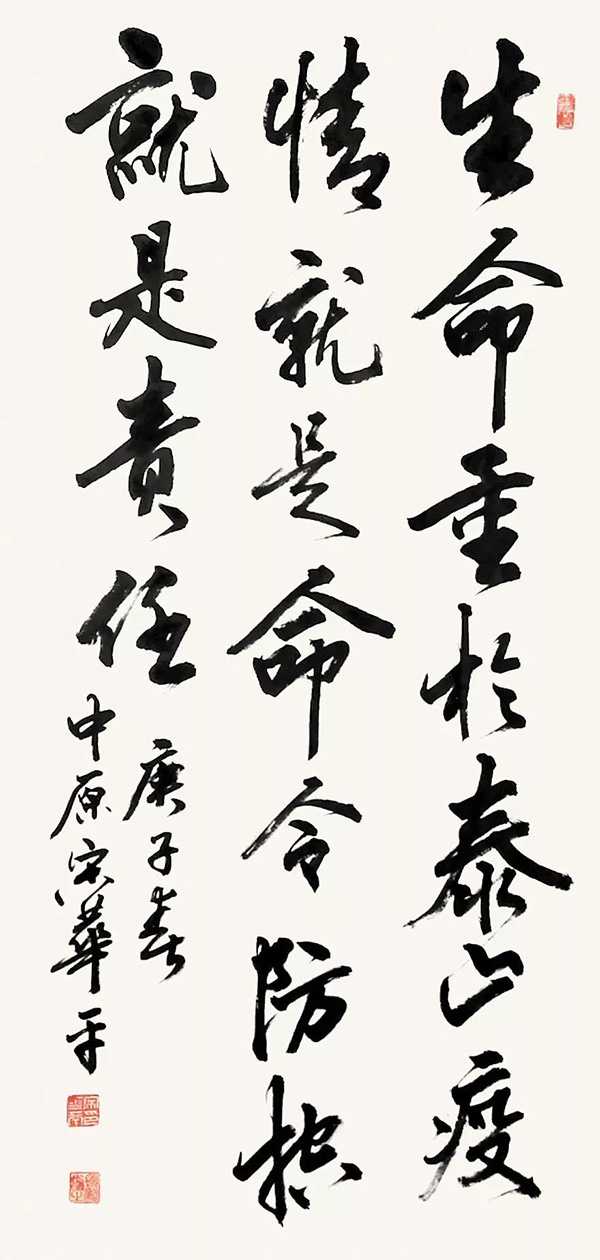 生命重於泰山疫
情就是命令防控
就是責任
庚子春
中原宋華平